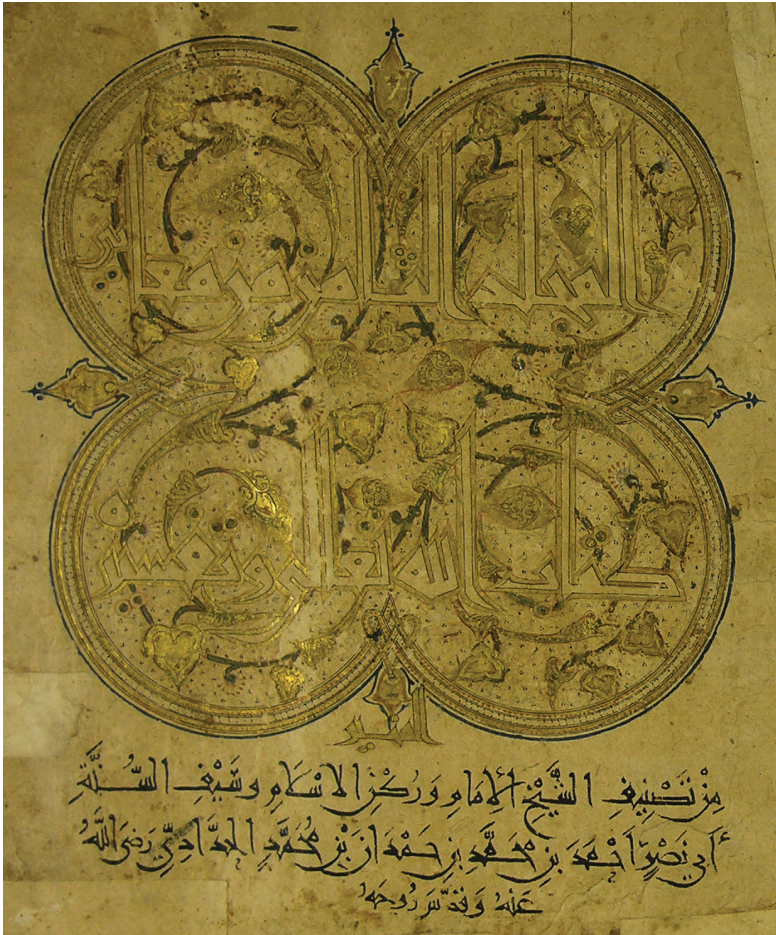 المجلد الثامن من معاني
كتاب الله تعالى وتفسيره
المنير
مِنْ تَصْنِيفِ الشَّيْخِ الْإِمَامِ وَرُكْنِ الْاسْلَامِ وَسَيْفِ السُّنَّةِ
أَبِي نَصْرٍ أَحْمَدَ بْنِ مُحَمَّدِ بْنِ حَمْدَانَ بْنِ مُحَمَّدٍ الحدَّادِيِّ رَضِيَ اللَّهُ
عَنْهُ وَقَدَّسَ رُوحَهُ